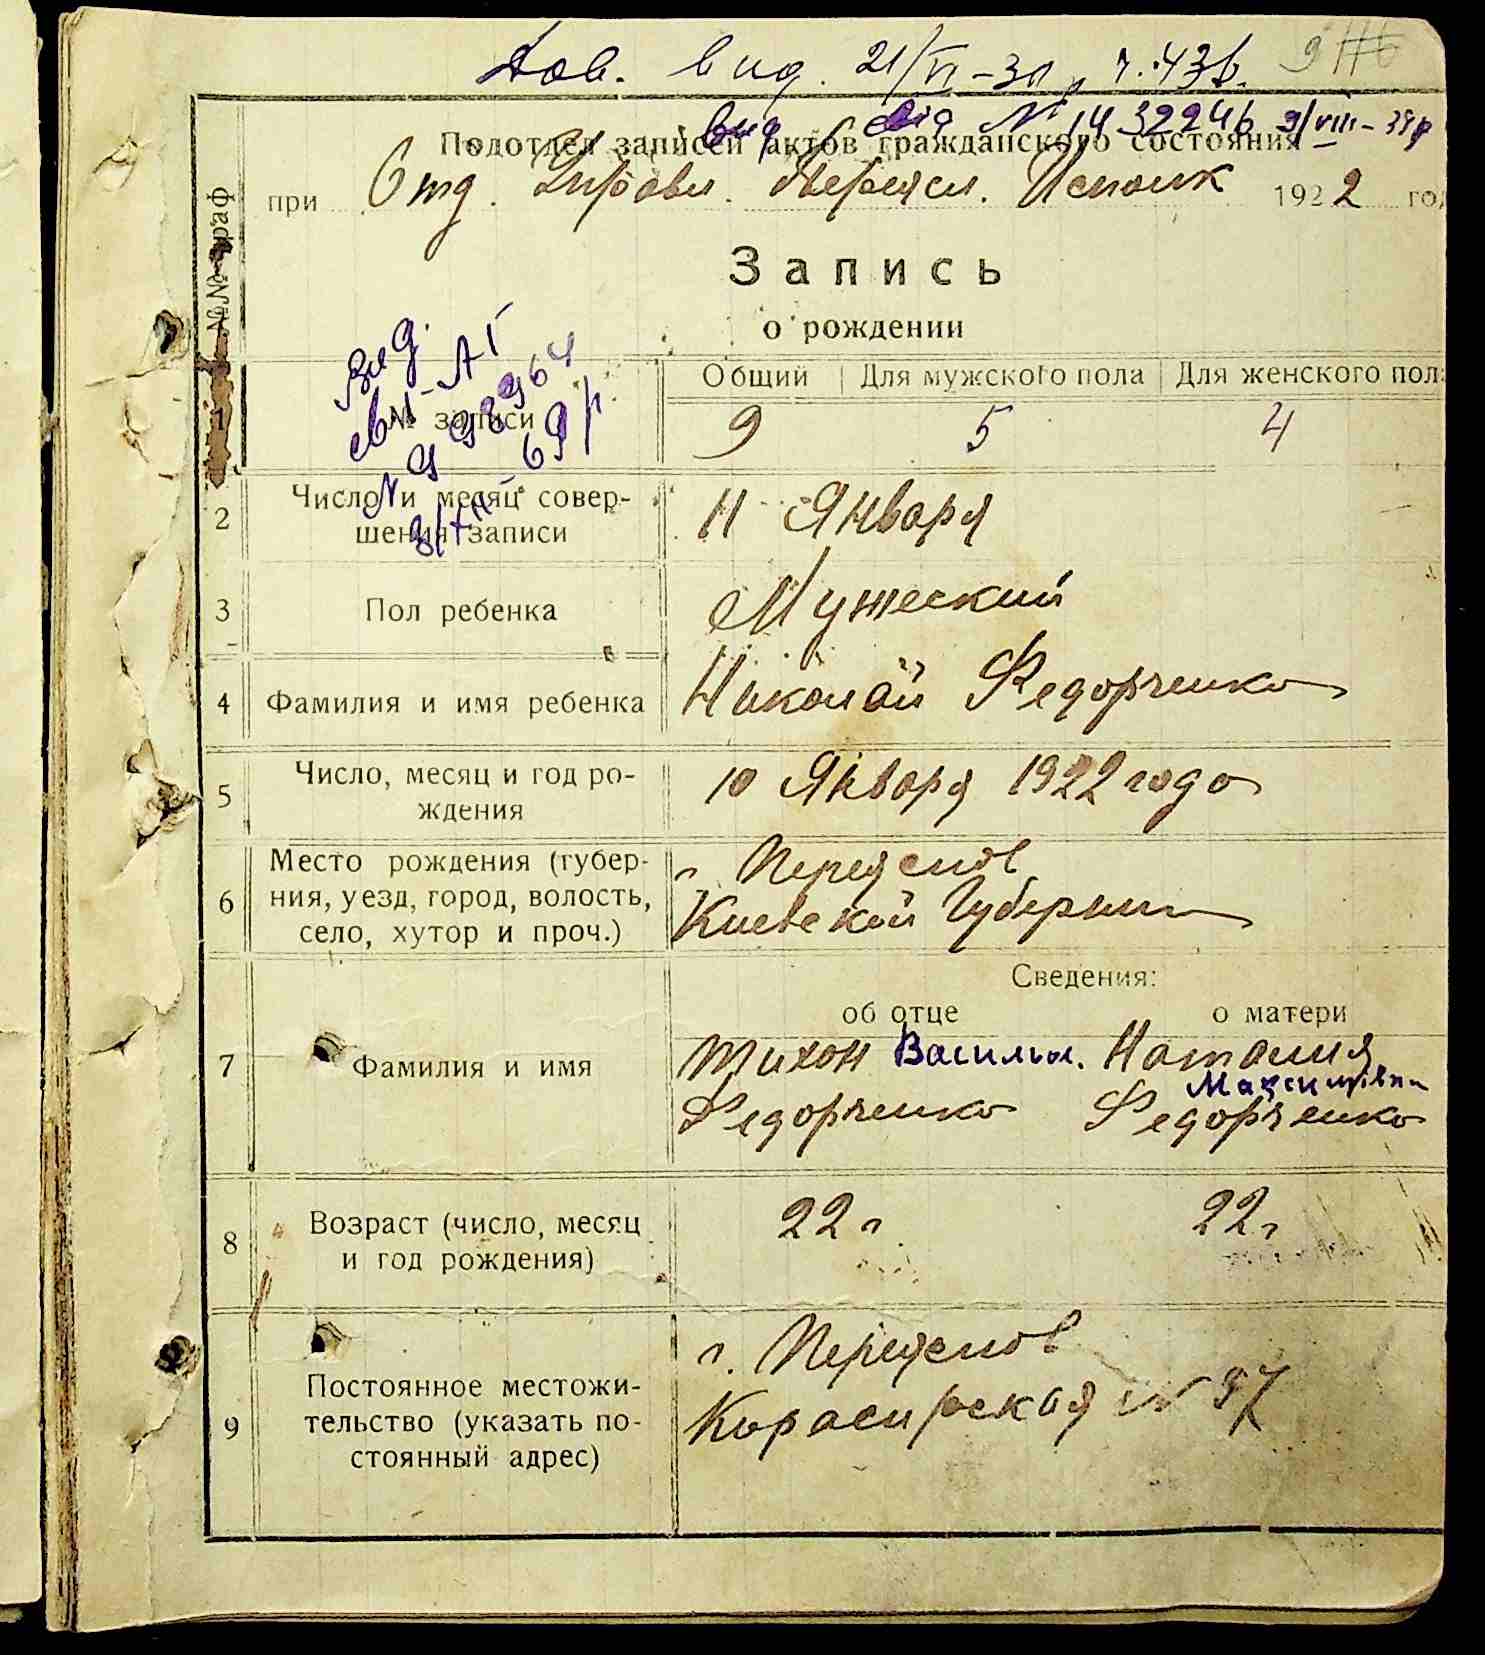 Дов. вид. 21/VI-30 р ч. 436.
вид. свід № 1432246 9/VIII-39р
Подотдел записей актов гражданского состояния
при Отд. Управл. Переясл. Исполк 1922 год
№№ граф
Запись
о рождении
Вид.
№ записи
Общий Для мужского пола Для женского пола
1 9 5 4
2 Число и месяц совер-
шения записи
11 Января
3 Пол ребенка Мужеский
4 Фамилия и имя ребенка Николай Федорченко
5 Число, месяц и год ро-
ждения
10 Января 1922 года
6 Место рождения (губер-
ния, уезд, город, волость,
село, хутор и проч.)
г. Переяслов
Киевской Губернии
Сведения:
об отце о матери
7 Фамилия и имя
Тихон Васильов. Наталия
Максимівна
Федорченко Федорченко
8 Возраст (число, месяц
и год рождения)
22 г. 22 г.
9 Постоянное местожи-
тельство (указать по-
стоянный адрес)
г. Переяслов
№ 37